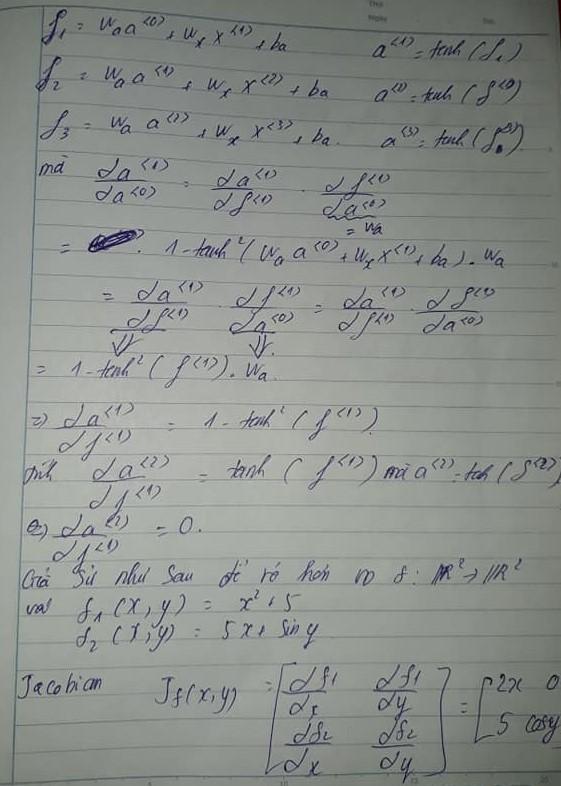 f₁ = Wₐa<0> + Wₓ x<1> + ba a<1> = tanh(f₁)
f₂ = Wₐ a<1> + Wₓ x<2> + ba a<2> = tanh(f<2>)
f₃ = Wₐ a<2> + Wₓ x<3> + ba. a<3> = tanh(f<3>).
mà da<1>/da<0> = da<1>/df<1> . df<1>/da<0>
= Wa
= . 1-tanh²(Wₐ a<0> + Wₓ x<1> + ba) . Wa
= da<1>/df<1> . df<1>/da<0> = da<1>/df<1> . df<1>/da<0>
⇓ ⇓
= 1-tanh²(f<1>) . Wa.
=> da<1>/df<1> = 1 - tanh²(f<1>).
tính da<2>/df<1> = tanh (f<1>) mà a<2> = tah(f<2>)
=> da<2>/df<1> = 0.
Giả sử như sau để rõ hơn VD f: ℝ² → ℝ²
với f₁(x,y) = x² + 5
f₂(x,y) = 5x + sin y
Jacobian J_f(x,y) = [df₁/dx df₁/dy; df₂/dx df₂/dy] = [2x 0; 5 cosy